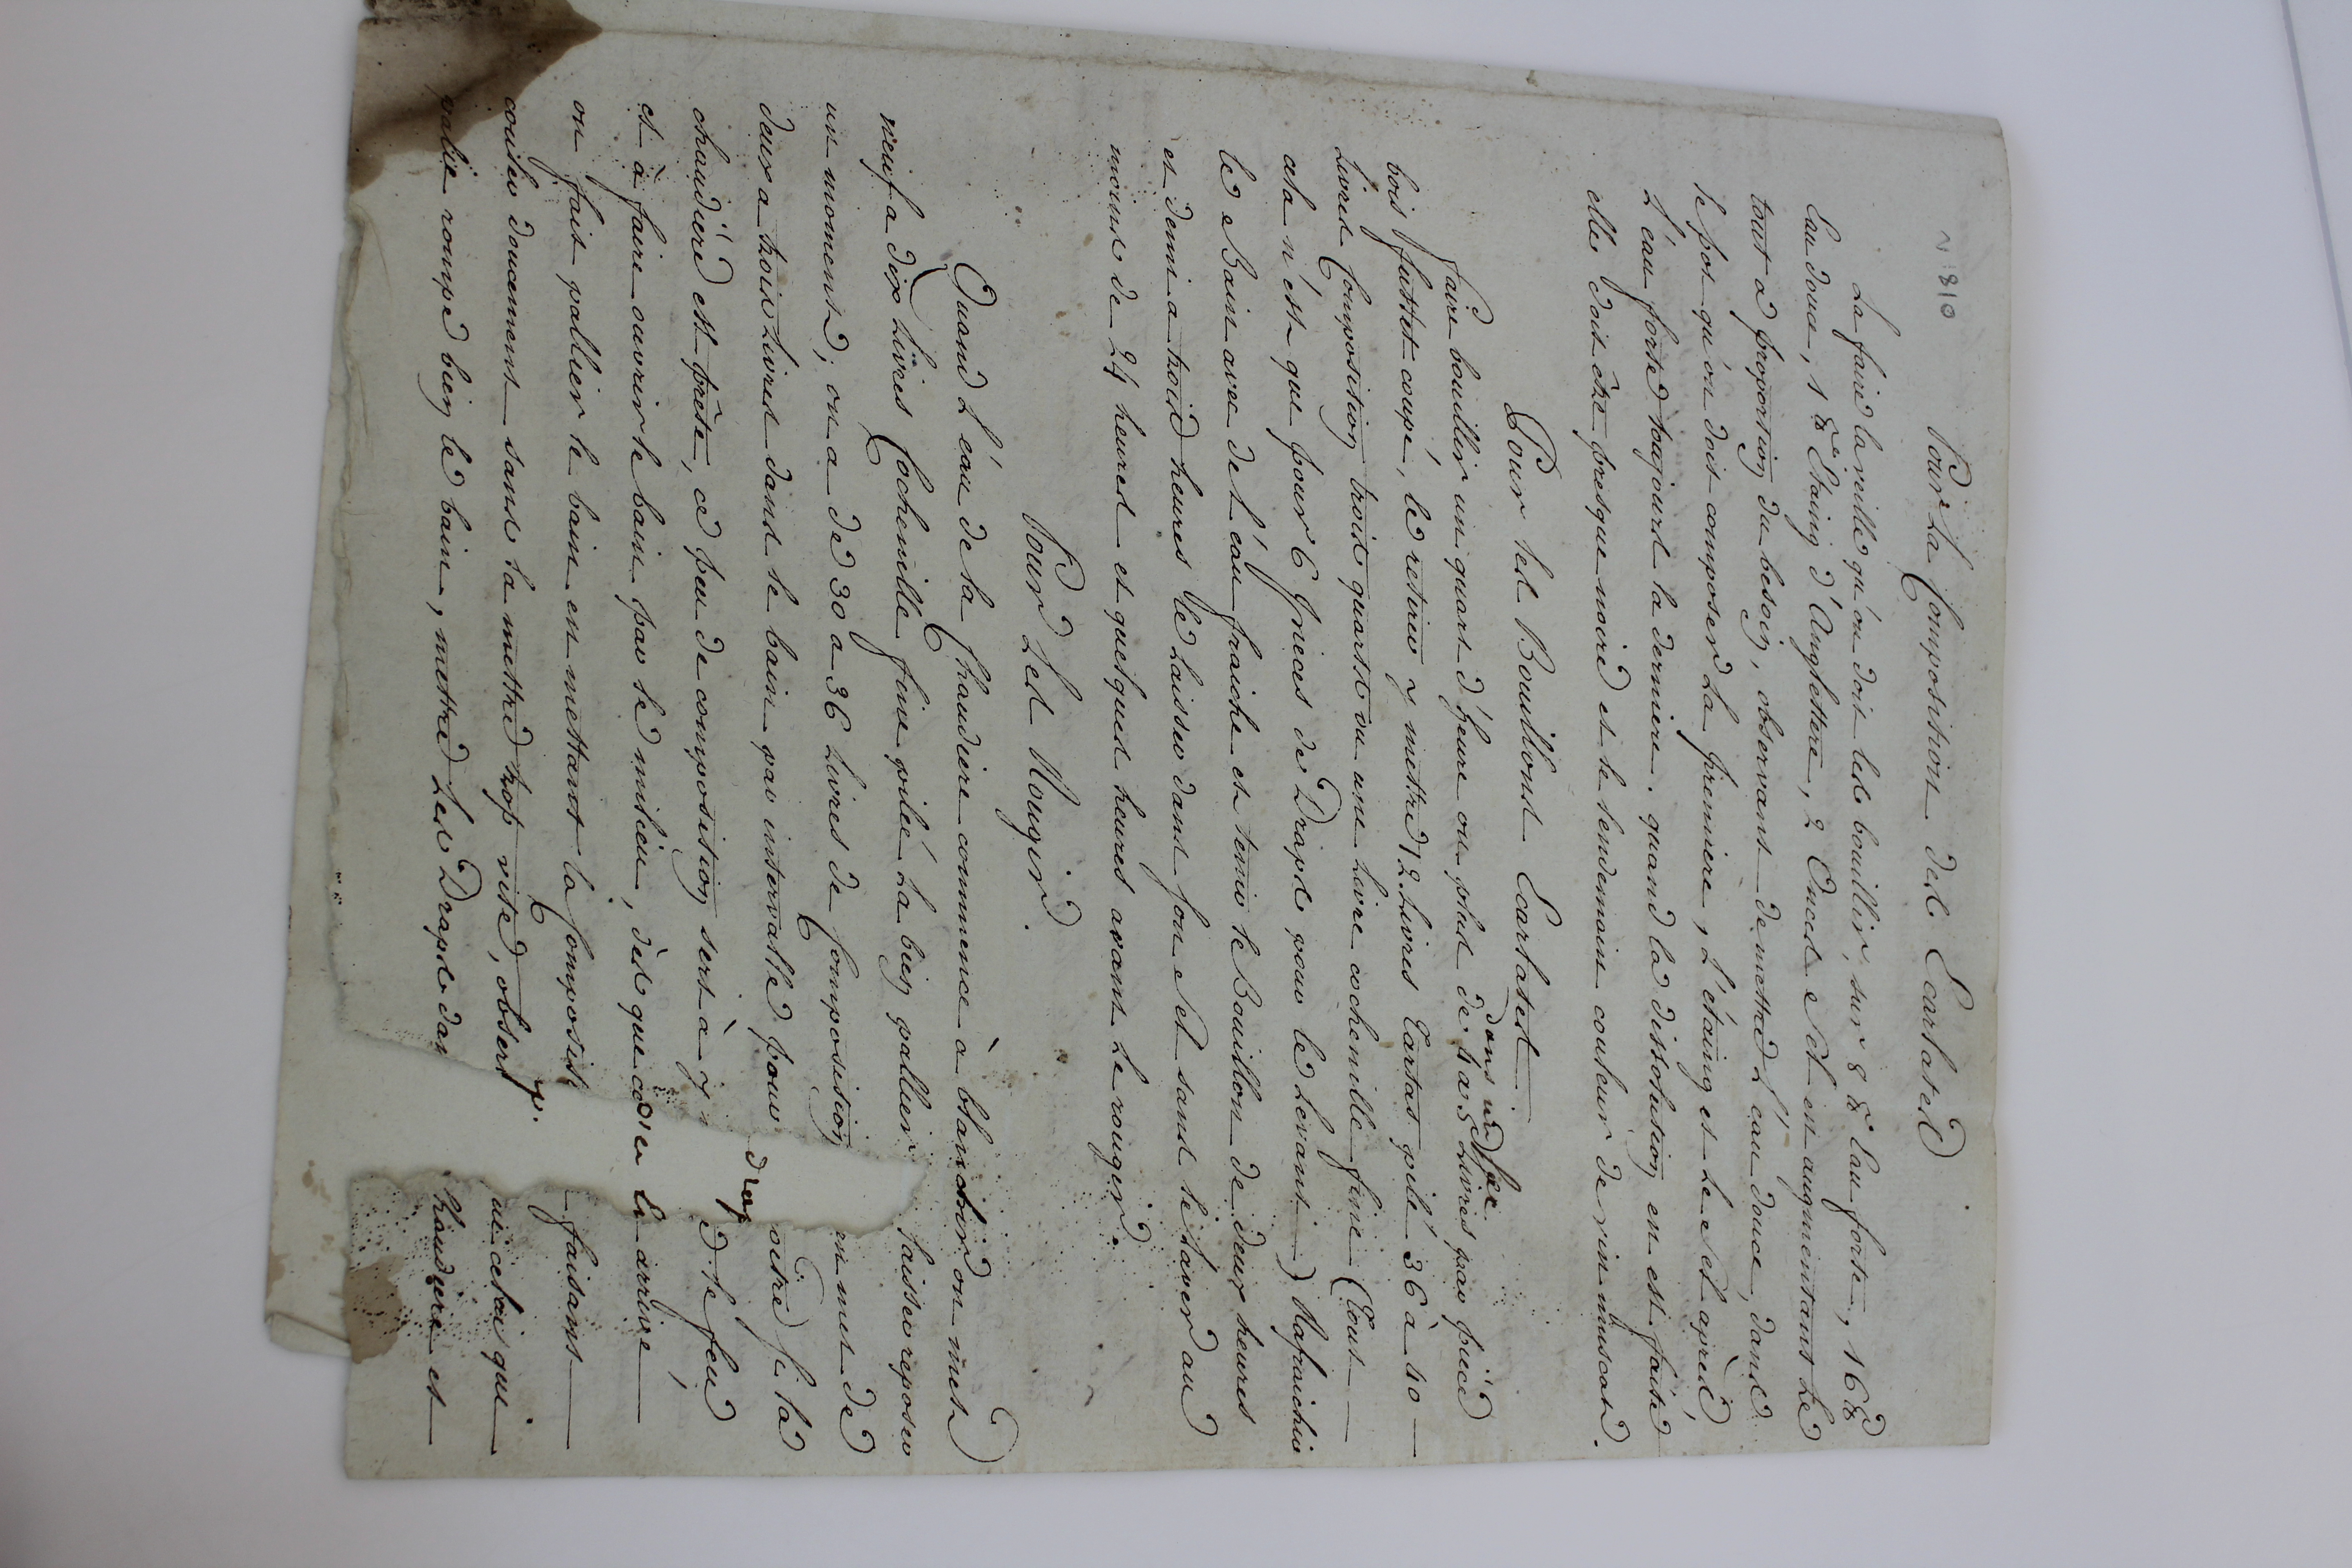 N. 810
Pour La Composition des Ecarlates
La faire la veille qu'on doit les bouillir, sur 8 ℔ Eau forte, 16 ℔
Eau douce, 1 ℔ Etaing d'Anglettere, 2 Onces Sel en augmentant Le
tout a proportion du besoin, observant de mettre L'eau douce, dans
le pot qu'on doit composer La premiere, L'étaing et Le Sel après,
L'eau forte toujours la derniere. quand la dissolution en est faite
elle doit être presque noire et le lendemain couleur de vin muscat.
Pour les Bouillons Ecarlates.
dans un sac
faire bouillir un quart d'heure ou plus de 4 a 5 Livres par pièce
bois futtet coupé, le retirer y mettre 12 Livres Tartas pilé 36 à 40
Livres Composition trois quarts ou une Livre cochenille fine (Tout
cela n'ést que pour 6 Pieces de Draps pour le Levant) Rafraichir
le Bain avec de L'eau fraiche et tenir le Bouillon de deux heures
et demi a trois heures le Laisser dans son Sel sans le Laver au
moins de 24 heures et quelques heures avant Le rougir.
Pour Les Rougir.
Quand L'eau de la Chaudiere commence à blanchir on met
neuf a dix Livres Cochenille fine pilée La bien pallier laisser reposer
un moment, on a de 30 a 36 Livres de Composition en met de
deux a trois Livres dans le bain par intervalle pour voire si la
chaudiére est prête, ce peu de composition sert à y drap e le feu
et à faire ouvrir le bain par le milieu, dès que ce cas la arrive
on fait pallier le bain en mettant la Composit faisant
couler doucement sans la mettre trop vite, observ p. ue celui qui
pallie rompe bien le bain, mettre Les Draps dan haudiere et